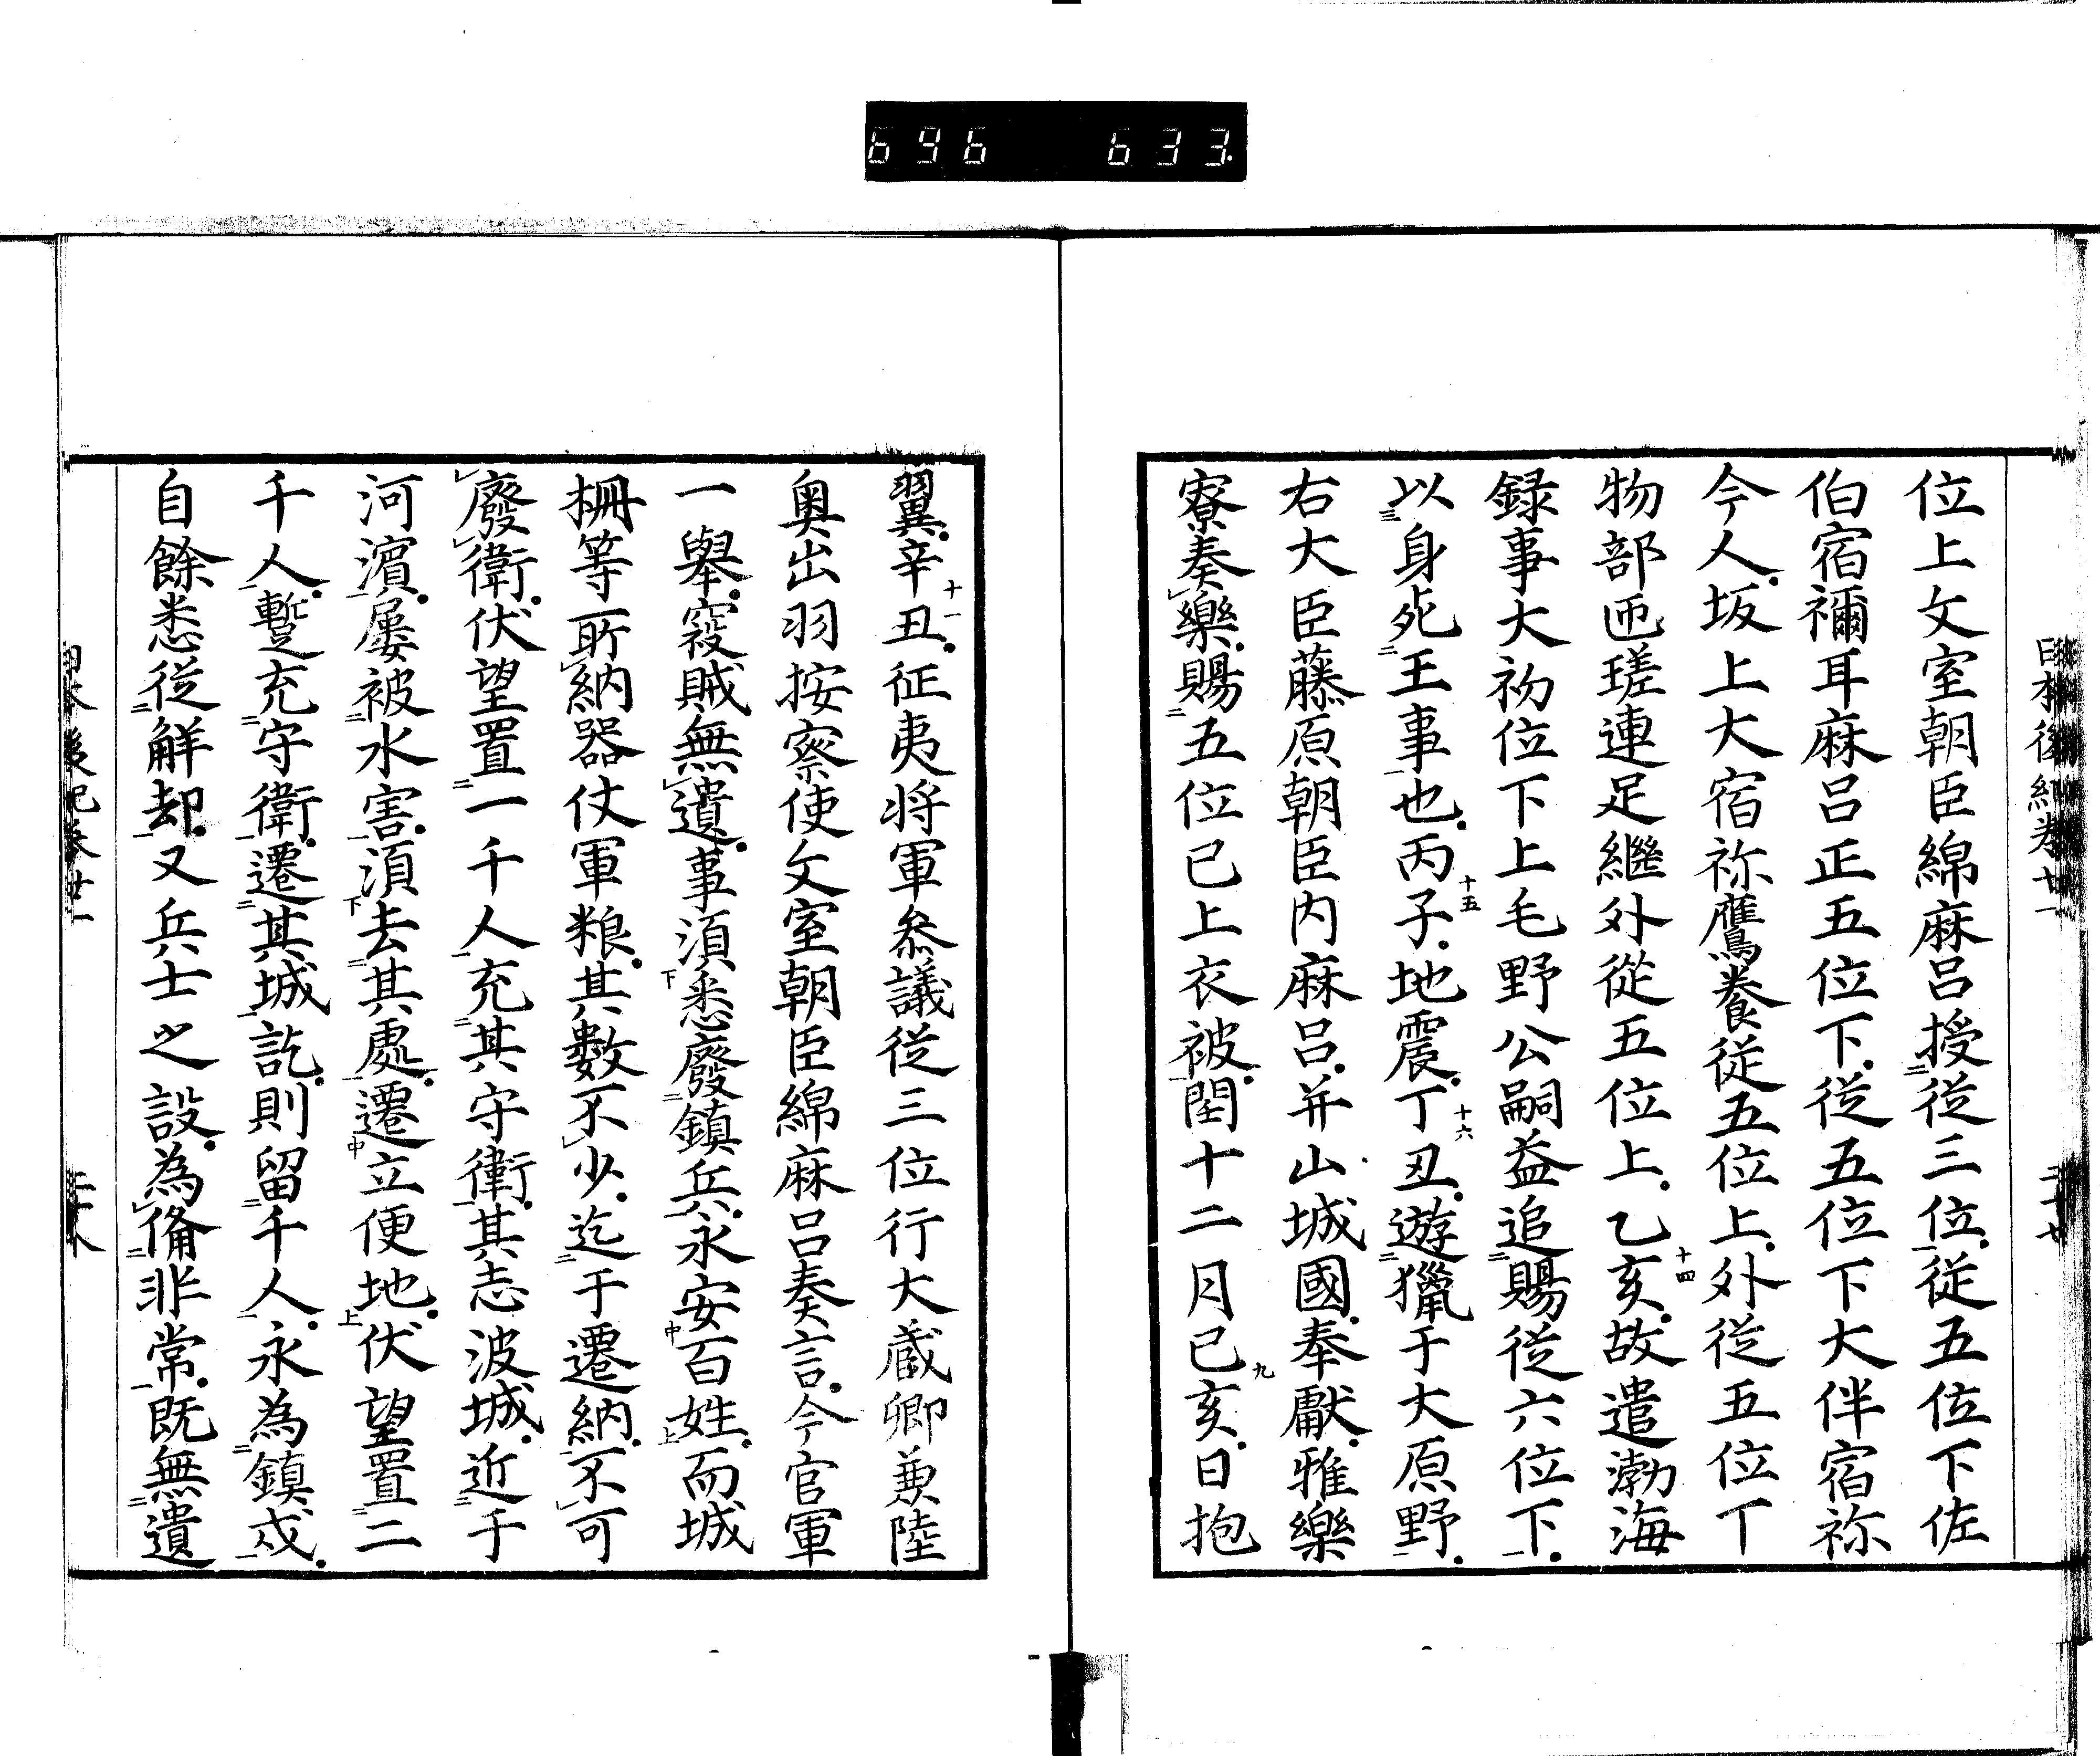 696 633
位上文室朝臣綿麻呂授従三位従五位下佐
伯宿禰耳麻呂正五位下従五位下大伴宿祢
今人坂上大宿祢鷹養従五位上外従五位下
物部匝瑳連足継外従五位上乙亥十四故遣渤海
録事大初位下上毛野公嗣益追賜従六位下
以身死王事也丙子十五地震丁丑十六遊獵于大原野
右大臣藤原朝臣内麻呂并山城國奉獻雅樂
寮奏樂賜五位已上衣被閏十二月己亥九日抱
翼辛丑十一征夷将軍参議従三位行大蔵卿兼陸
奥出羽按察使文室朝臣綿麻呂奏言今官軍
一舉寇賊無遺事須悉廢鎮兵永安百姓而城
柵等所納器仗軍粮其數不少迄于遷納不可
廢衛伏望置一千人充其守衛其志波城近于
河濵屡被水害須去其處遷立便地伏望置二
千人蹔充守衛遷其城訖則留千人永為鎮戍
自餘悉従解却又兵士之設為俻非常既無遺